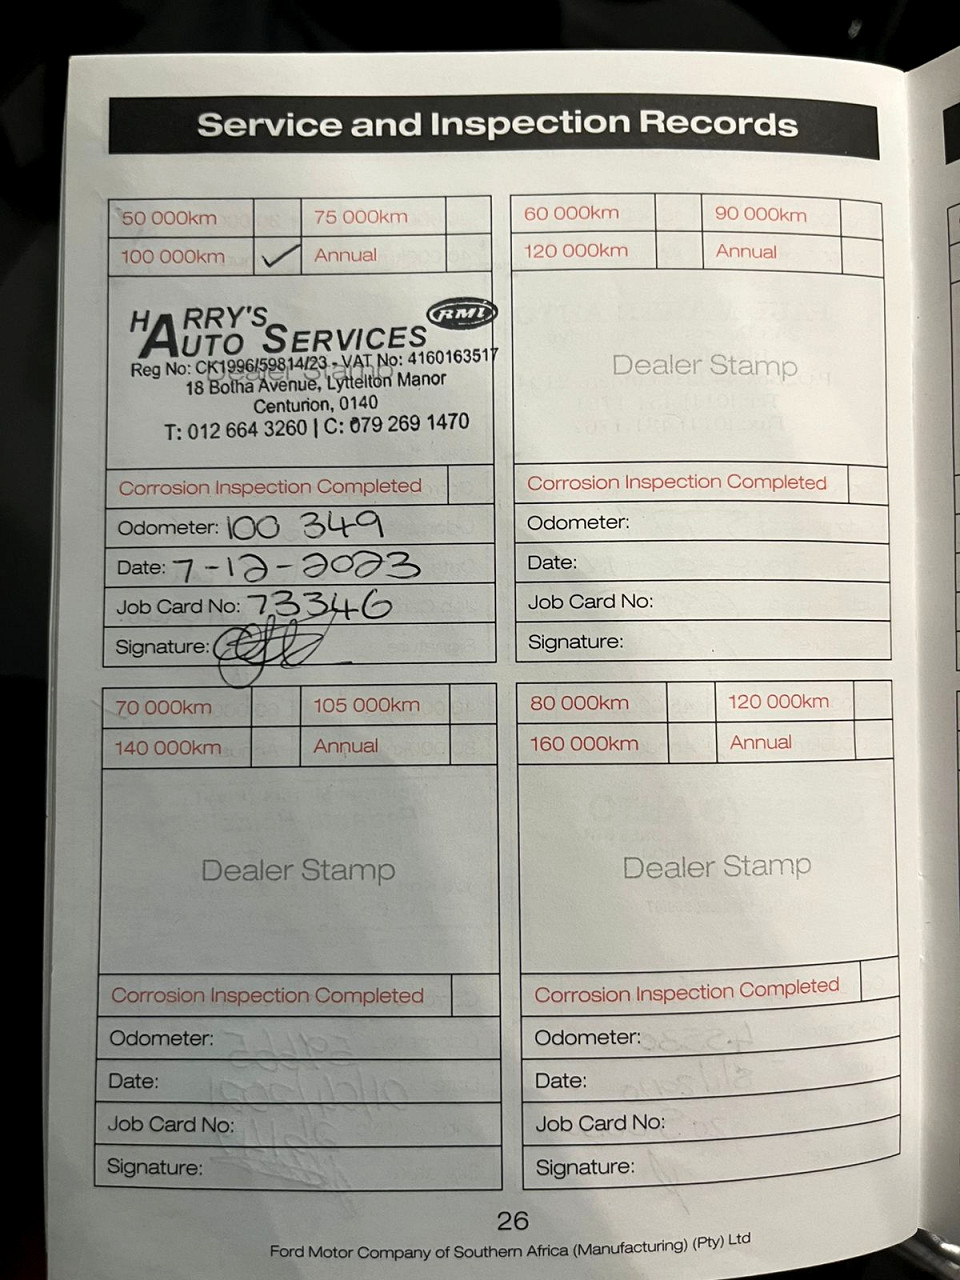 Service and Inspection Records
50 000km 75 000km
100 000km ✓ Annual
HARRY'S
AUTO SERVICES RMI
Reg No: CK1996/59814/23 - VAT No: 4160163517
Dealer Stamp
18 Botha Avenue, Lyttelton Manor
Centurion, 0140
T: 012 664 3260 | C: 079 269 1470
Corrosion Inspection Completed
Odometer: 100 349
Date: 7-12-2023
Job Card No: 73346
Signature:
60 000km 90 000km
120 000km Annual
Dealer Stamp
Corrosion Inspection Completed
Odometer:
Date:
Job Card No:
Signature:
70 000km 105 000km
140 000km Annual
Dealer Stamp
Corrosion Inspection Completed
Odometer:
Date:
Job Card No:
Signature:
80 000km 120 000km
160 000km Annual
Dealer Stamp
Corrosion Inspection Completed
Odometer:
Date:
Job Card No:
Signature:
26
Ford Motor Company of Southern Africa (Manufacturing) (Pty) Ltd